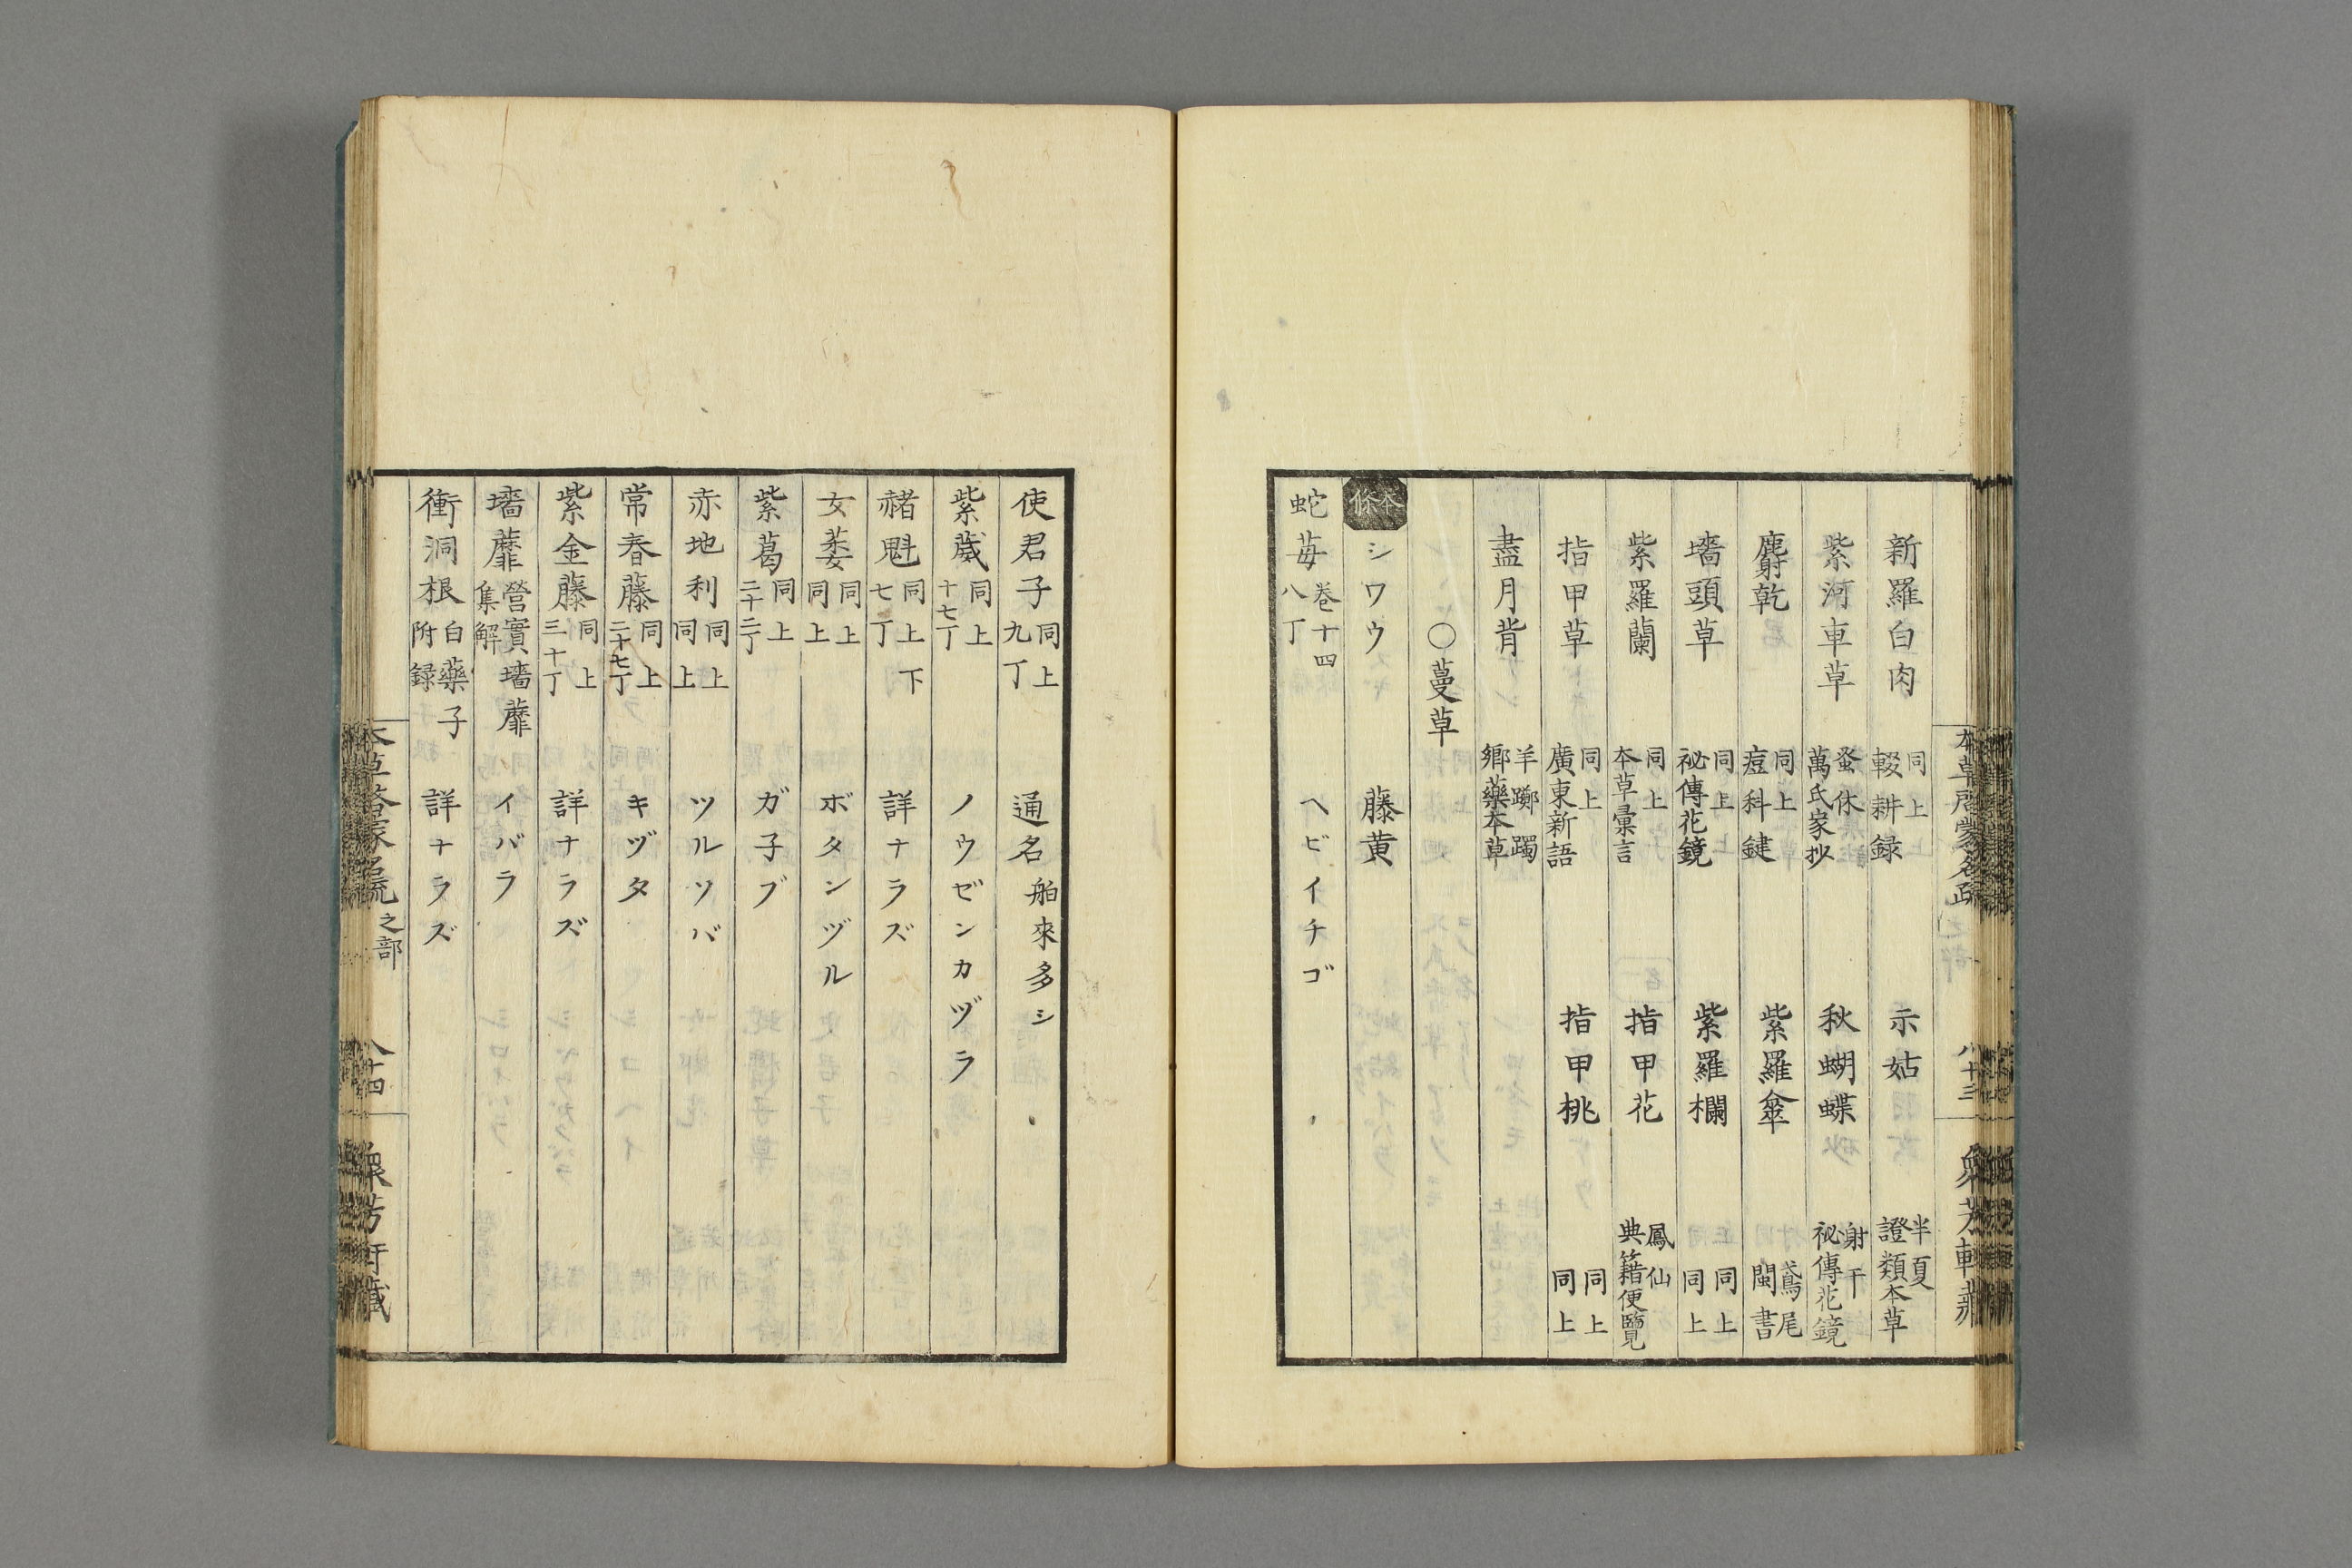 新羅白肉 同上 輟耕録 示姑 半夏 證類本草
紫河車草 蚤休 萬氏家抄 秋蝴蝶 射干 祕傳花鏡
麝乾 同上 痘科鍵 紫羅傘 鳶尾 閩書
墻頭草 同上 祕傳花鏡 紫羅欄 同上 同上
紫羅蘭 同上 本草彙言 指甲花 鳳仙 典籍便覽
指甲草 同上 廣東新語 指甲桃 同上 同上
盡月背 羊躑躅 鄉藥本草
○蔓草
本條 シワウ 藤黄
蛇苺 卷十四 八丁 ヘビイチゴ
使君子 同上 九丁 通名 舶來多シ
紫葳 同上 十七丁 ノウゼンカヅラ
赭魁 同上下 七丁 詳ナラズ
女萎 同上 同上 ボタンヅル
紫葛 同上 二十二丁 ガ子ブ
赤地利 同上 同上 ツルソバ
常春藤 同上 二十七丁 キヅタ
紫金藤 同上 三十丁 詳ナラズ
墻蘼 營實墻蘼 集解 イバラ
衝洞根 白藥子 附録 詳ナラズ
本草啓蒙名疏 之部 八十四